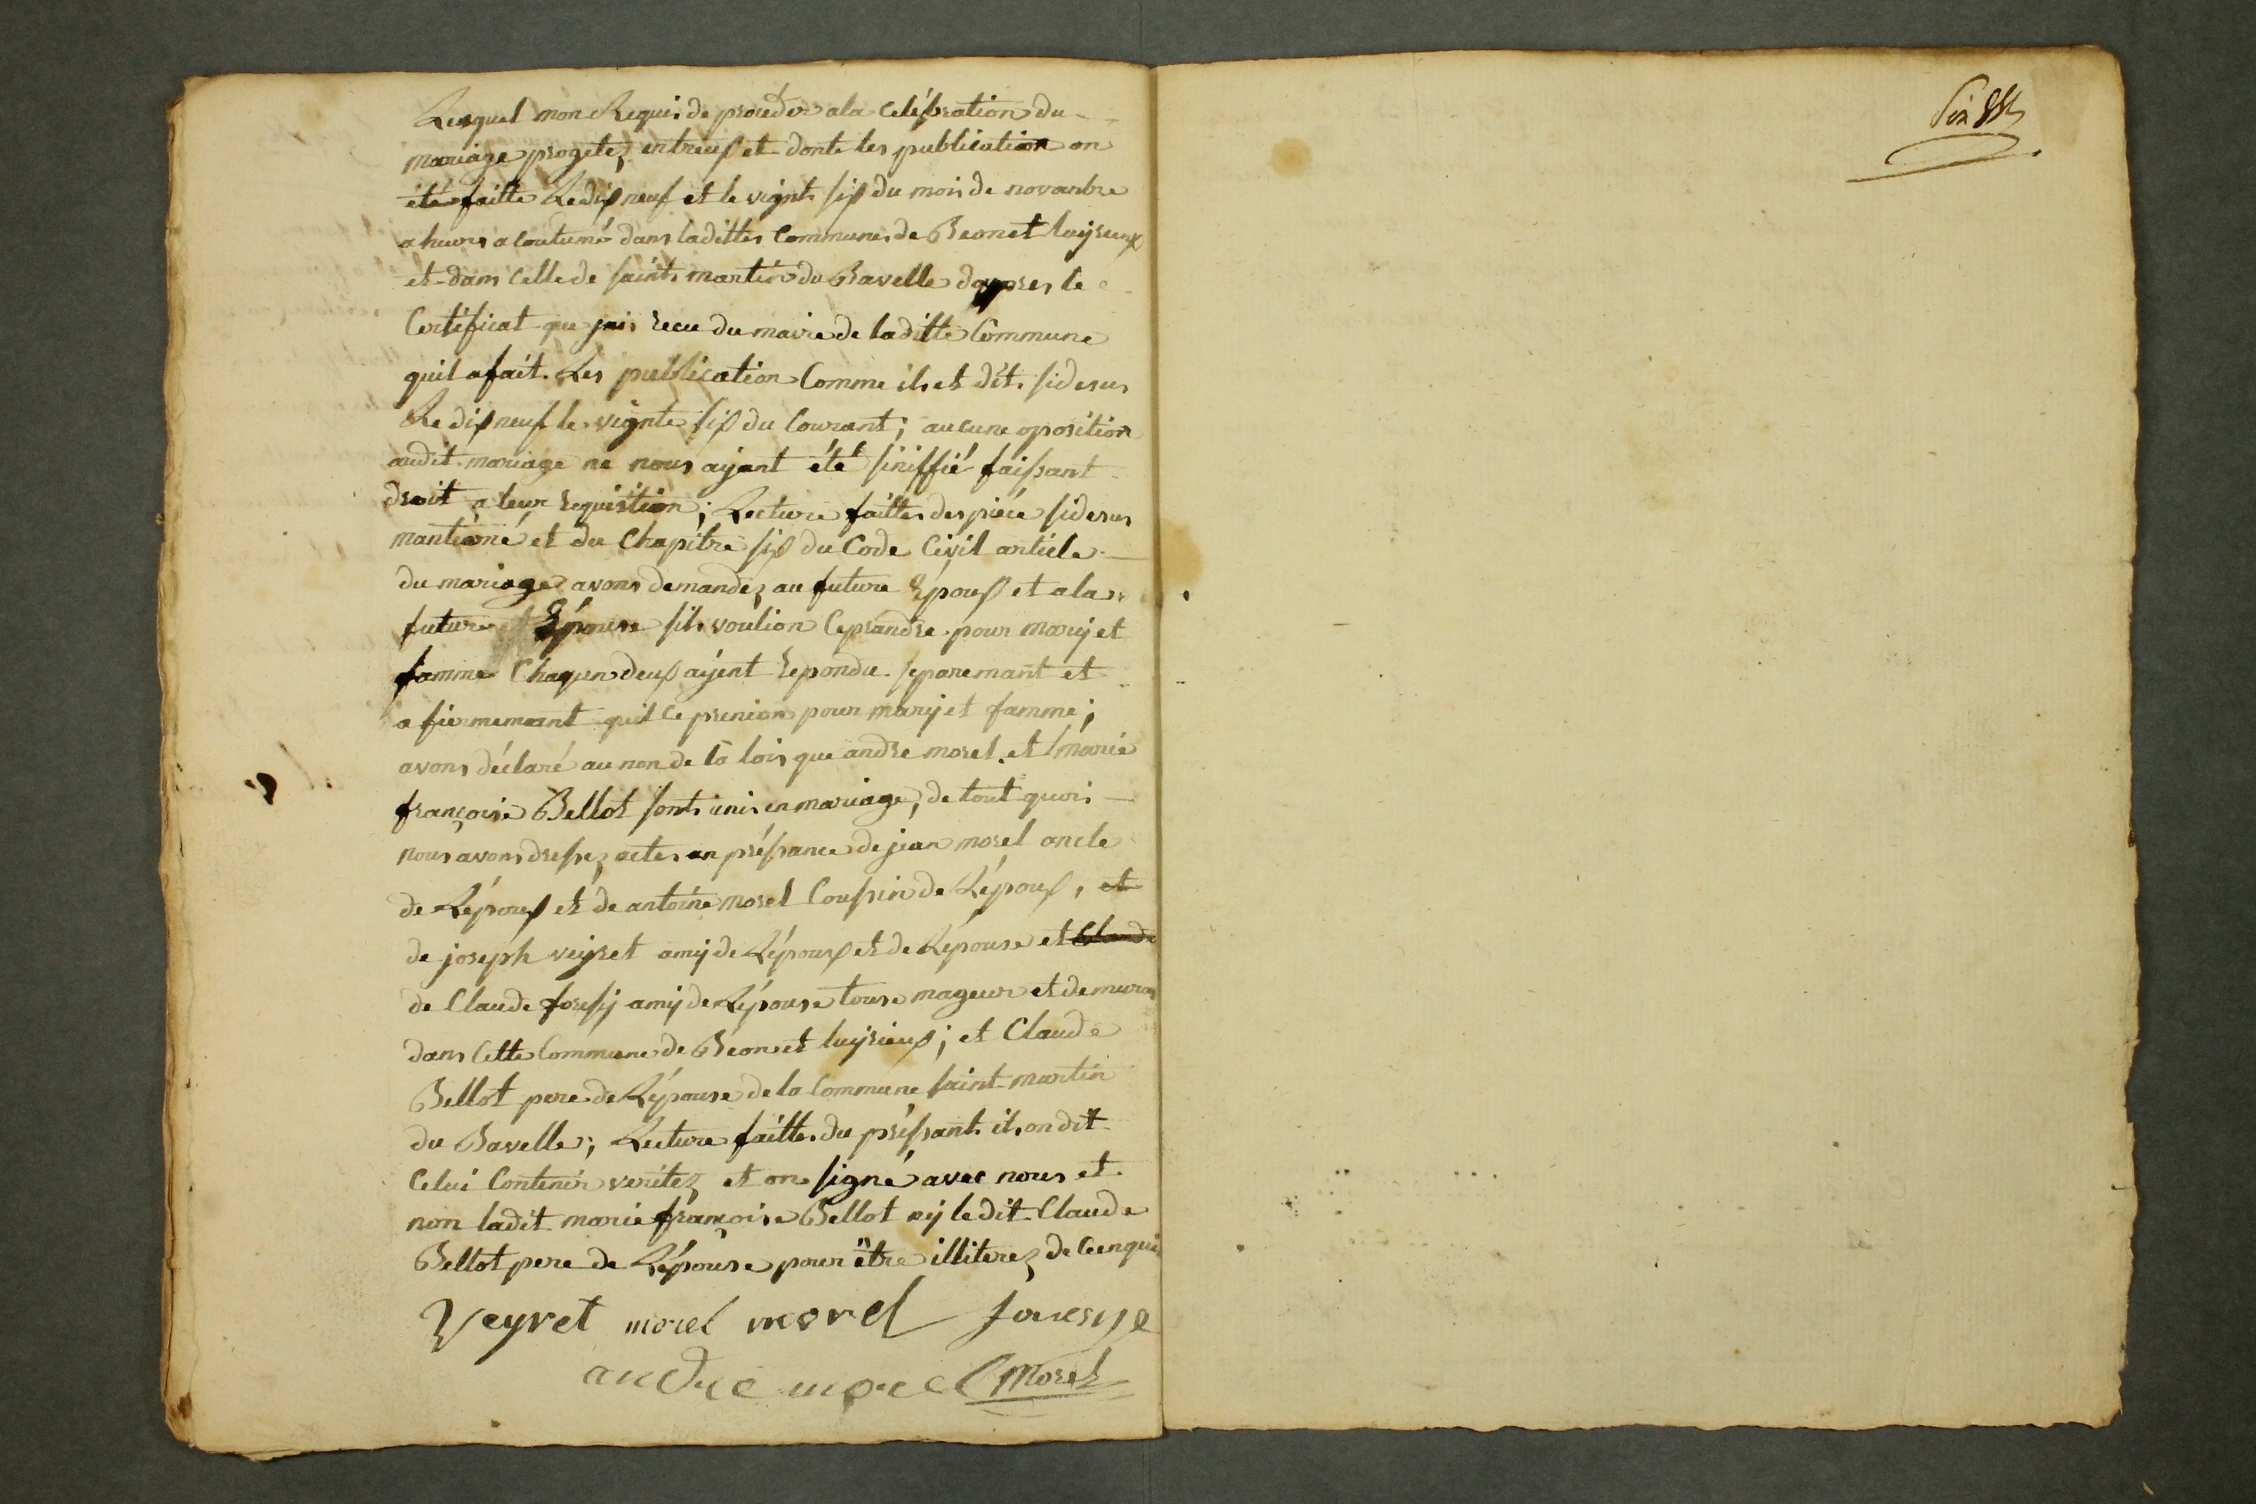 Lesquel mon Requis de proceder a la celébration du
mariage progetez entreux et donte les publication on
été faitte Le dix neuf et le vignt six du mois de novanbre
a heures a coutumé dans laditte Commune de Beon et luyrieux
et dans celle de saint martin du Bavelle dappres le
Certificat que jais recu du maire de laditte Commune
quil a fait. Les publication Comme il et dit sidesus
Le dix neuf le vignte six du Courant; aucune oposition
audit mariage ne nous ayant été siniffié faissant
droit a leur requisition; Lecture faitte des piéce sidesus
mantioné et du Chapitre six du Code Civil article
du mariage avons demandez au future Epoux et a la
future Epouse sils voulion Ceprandre pour mary et
famme Chaqun deux ayent repondu separemant et
a fiermemant quil ce prenion pour mary et famme;
avons déclaré au non de la lois que andre morel et marie
françoise Bellot sont unis en mariage, de tout quoi
nous avons dressez actes en préssance de jean morel oncle
de Lépoux et de antoine morel Coussin de Lépoux, et
de joseph veyret amy de Lépoux et de Lépouse et Claude
de Claude foressy amy de Lépouse touse mageur et demuran
dans Cette Commune de Beon et luyrieux; et Claude
Bellot pere de Lépouse de la Commune saint martin
du Bavelle; Lecture faitte du préssant ils on dit
Celui Contenir veritez et on signé avec nous et
non ladit marie françoise Bellot ny ledit Claude
Bellot pere de Lépouse pour être illiterez de Ce enquis
Veyret morel morel
andre morel Morel
Six